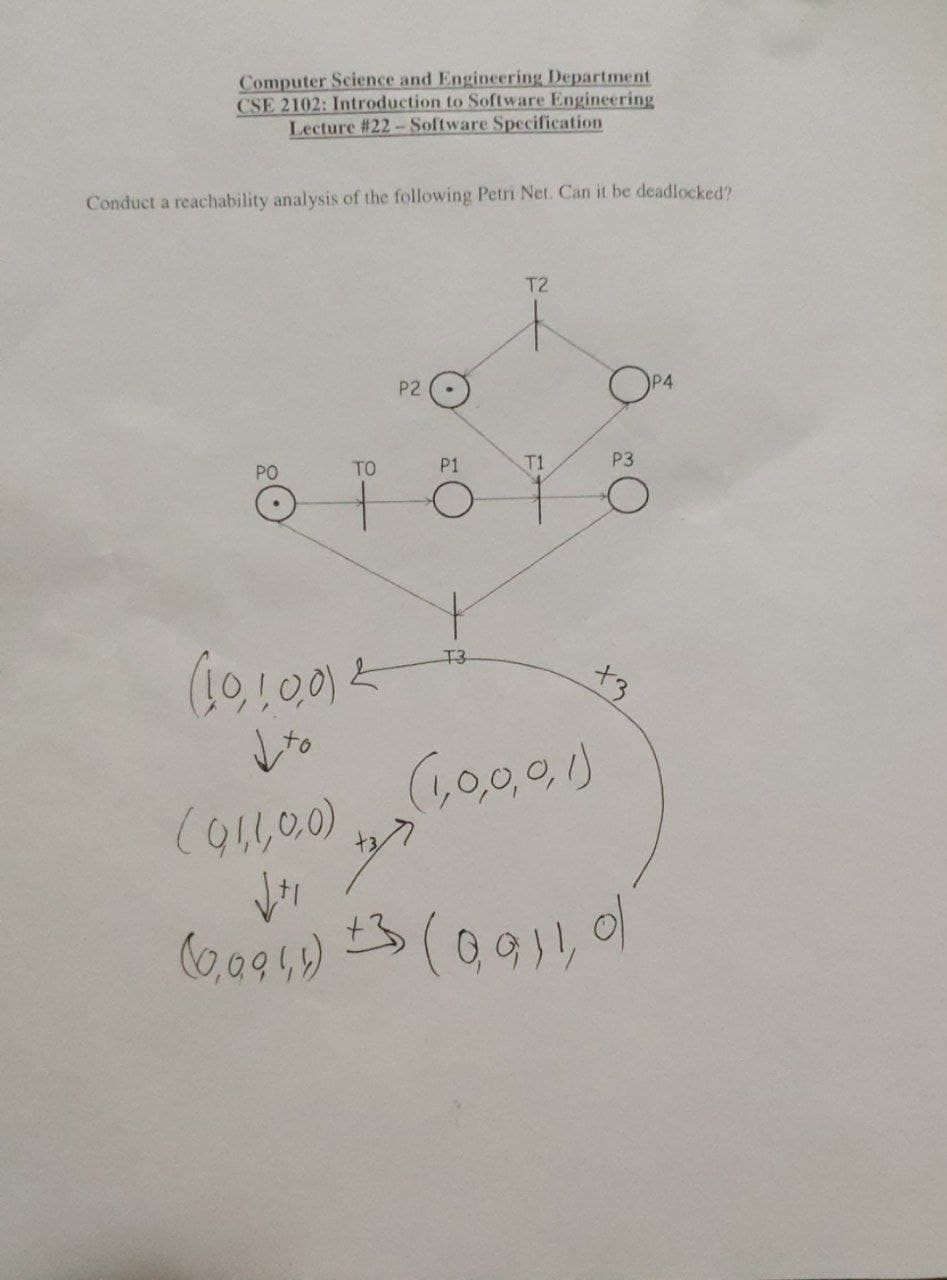 Computer Science and Engineering Department
CSE 2102: Introduction to Software Engineering
Lecture #22 – Software Specification
Conduct a reachability analysis of the following Petri Net. Can it be deadlocked?
T2
P2
P4
P0
T0
P1
T1
P3
T3
(1,0,1,0,0)
t3
↓t0
(1,0,0,0,1)
(0,1,1,0,0)
t3
↓t1
(0,0,0,1,1) t3 (0,0,1,1,0)